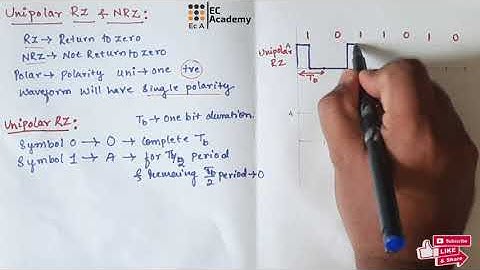 Unipolar RZ & NRZ:
EC Academy
EC A
RZ → Return to zero
NRZ → Not Return to zero
Polar → Polarity Uni → one +ve
Waveform will have single polarity
Unipolar RZ:
Tb → one bit duration.
Symbol 0 → 0 → complete Tb
Symbol 1 → A → for Tb/2 period
& Remaining Tb/2 period → 0
1 0 1 1 0 1 0
Unipolar
RZ
A
Tb
Subscribe
LIKE
& Share